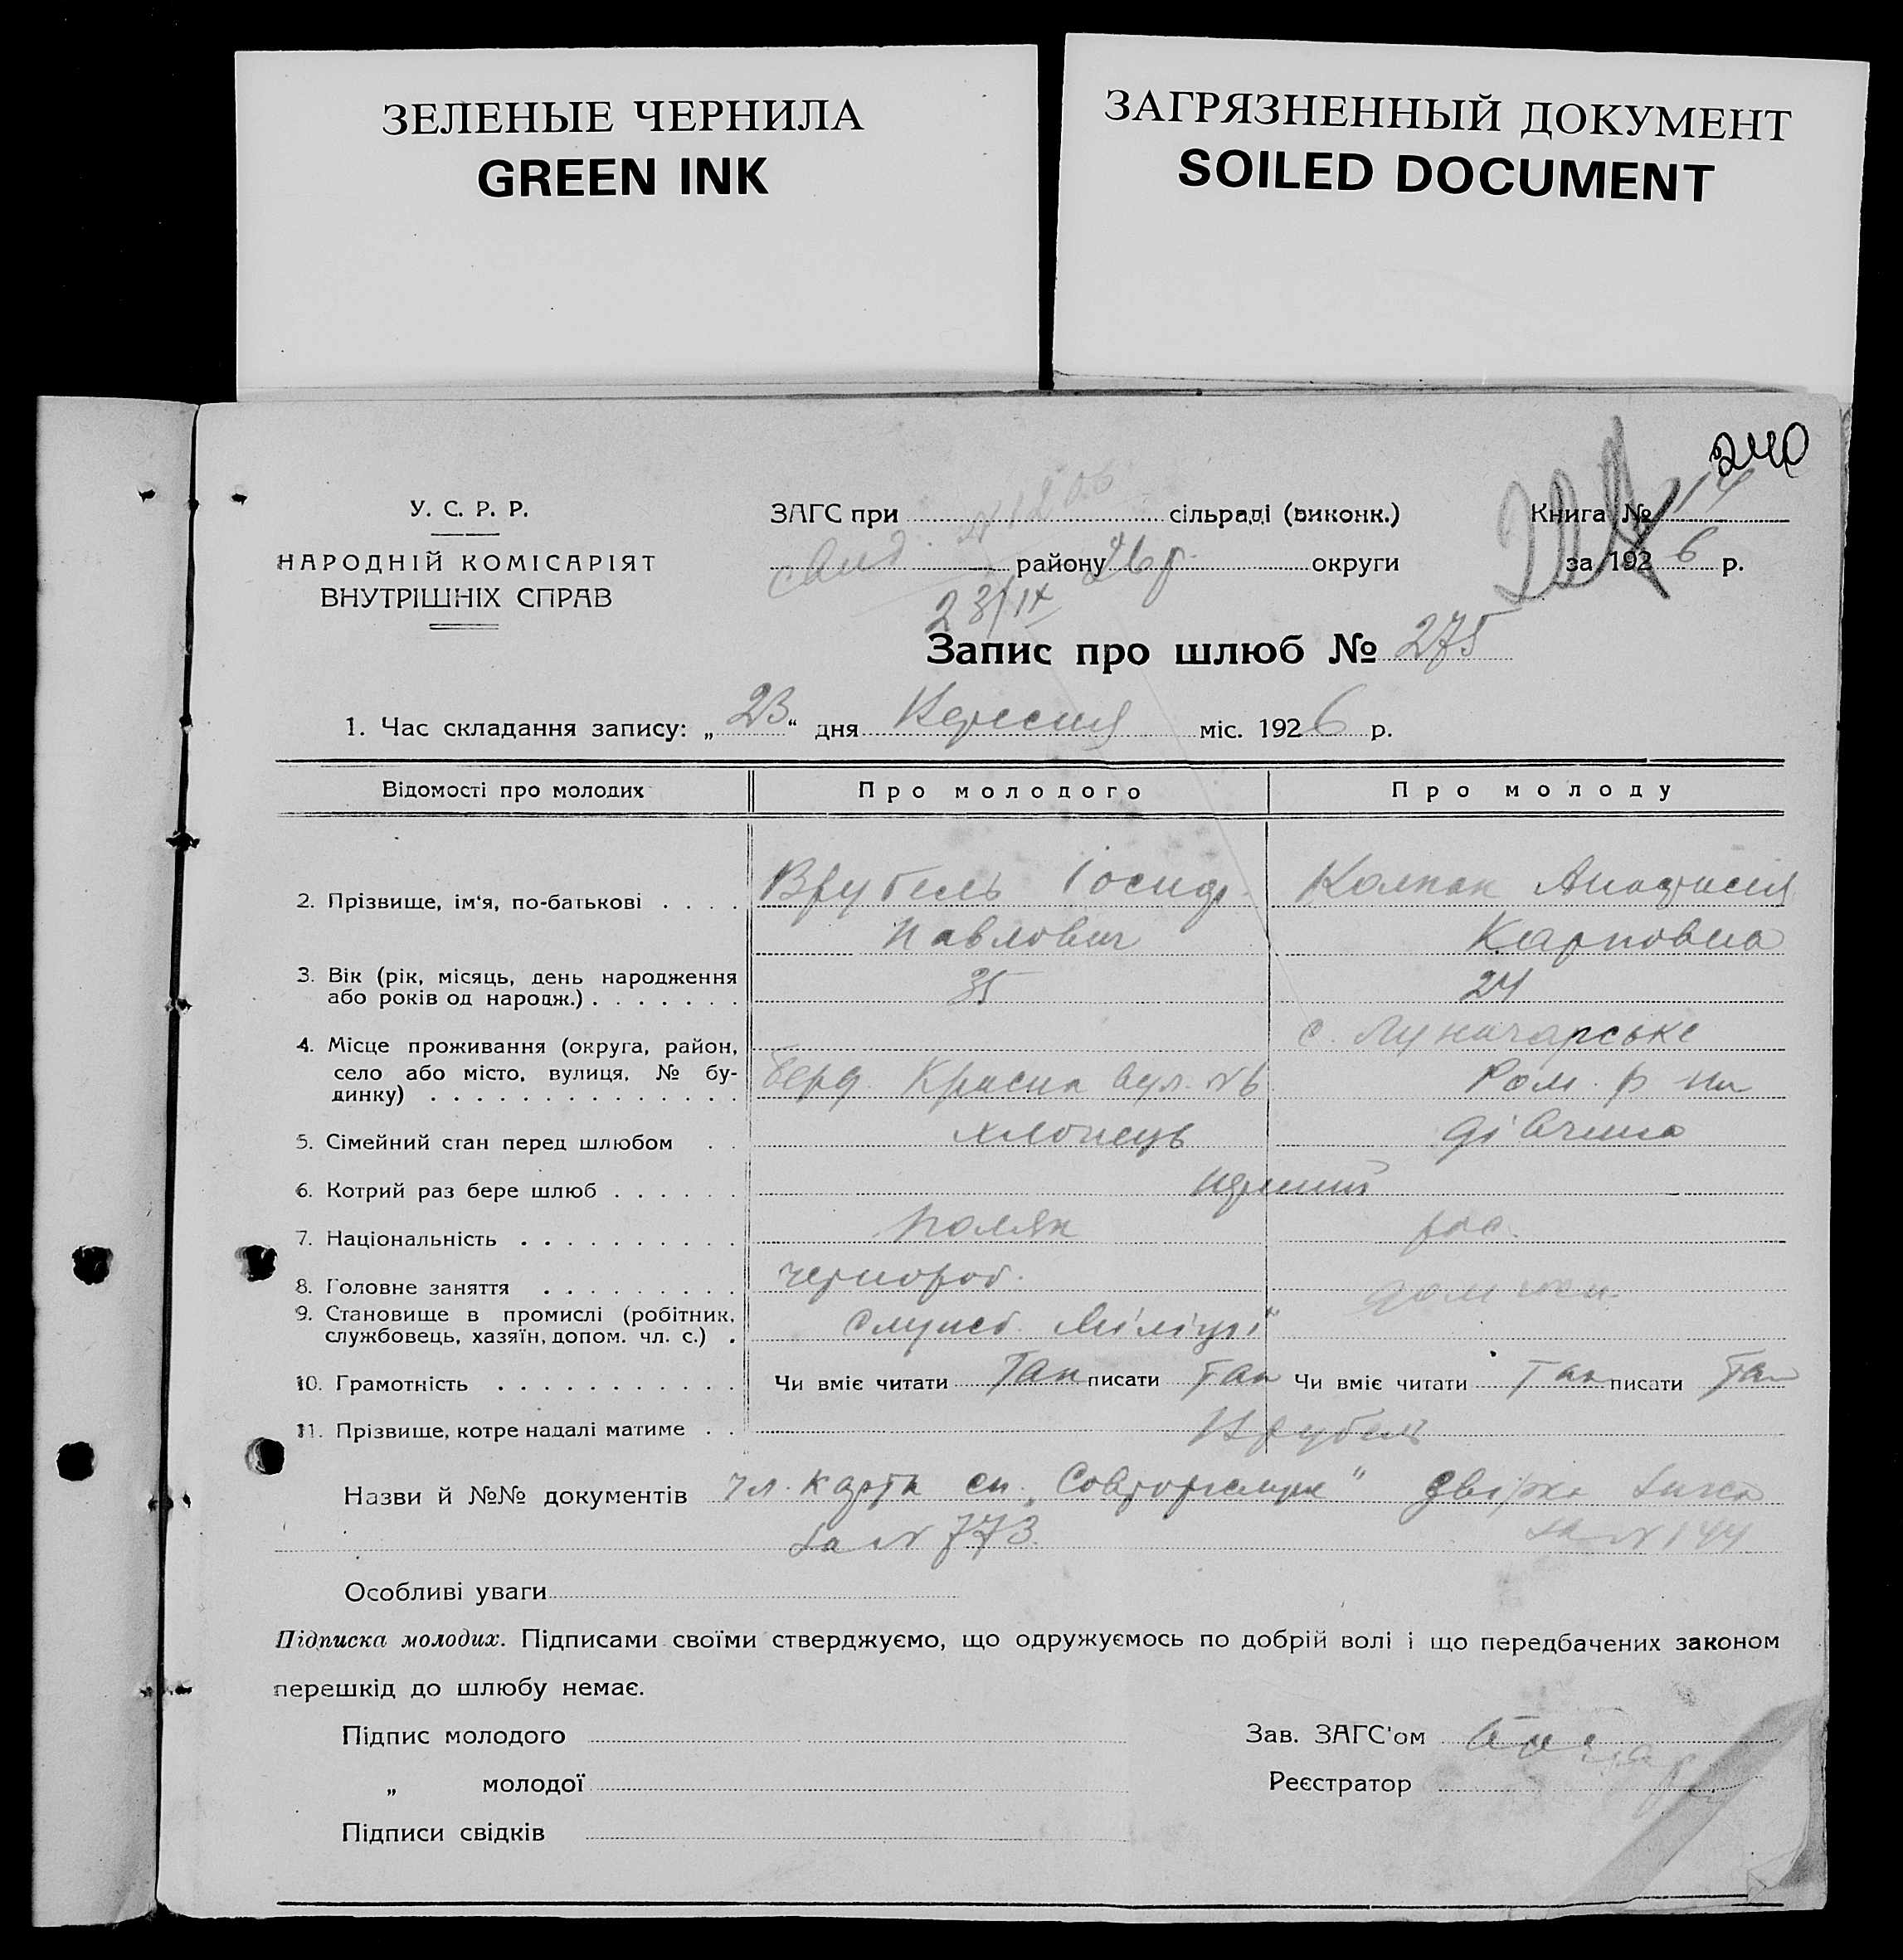 ЗЕЛЕНЫЕ ЧЕРНИЛА
GREEN INK
ЗАГРЯЗНЕННЫЙ ДОКУМЕНТ
SOILED DOCUMENT
240
У. С. Р. Р.
НАРОДНІЙ КОМІСАРІЯТ
ВНУТРІШНІХ СПРАВ
ЗАГС при сільраді (виконк.)
району 26 р. округи
23/IX
Книга № 14
за 1926 р.
Запис про шлюб № 275
1. Час складання запису: „23“ дня Вересня міс. 1926 р.
Відомості про молодих Про молодого Про молоду
2. Прізвище, ім‘я, по-батькові Врубель Іосиф Колпак Анастасія
Павлович Карповна
3. Вік (рік, місяць, день народження
або років од народж.) 35 24
4. Місце проживання (округа, район,
село або місто, вулиця, № будинку)
с. Луначарське
Берд. Красна вул. №6 Ром. р-ну
5. Сімейний стан перед шлюбом хлопець дівчина
6. Котрий раз бере шлюб перший
7. Національність поляк рос.
8. Головне заняття чернороб. дом
9. Становище в промислі (робітник,
службовець, хазяїн, допом. чл. с.) служб. Міліції
10. Грамотність Чи вміє читати Так писати Так Чи вміє читати Так писати Так
11. Прізвище, котре надалі матиме Врубель
Назви й №№ документів чл. карта сп. „Совторгслуж“
за № 773. за № 144
Особливі уваги
Підписка молодих. Підписами своїми стверджуємо, що одружуємось по добрій волі і що передбачених законом
перешкід до шлюбу немає.
Підпис молодого
„ молодої
Підписи свідків
Зав. ЗАГС'ом
Реєстратор